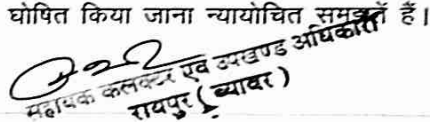 घोषित किया जाना न्यायोचित समझते हैं।
सहायक कलक्टर एवं उपखण्ड अधिकारी
रायपुर (ब्यावर)